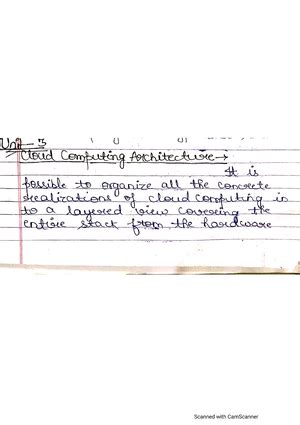 Unit - 3
Cloud Computing Architecture →
It is
possible to organize all the concrete
realizations of cloud computing in
to a layered view covering the
entire stack from the hardware
Scanned with CamScanner